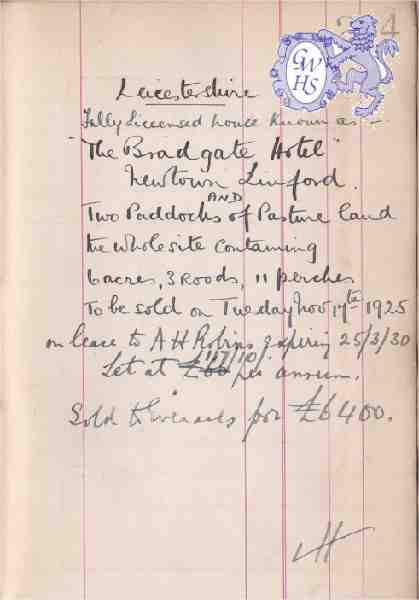 4
GWHS
Leicestershire
Fully Licensed house known as -
"The Bradgate Hotel"
Newtown Linford.
AND
Two Paddocks of Pasture land
the whole site containing
6 acres, 3 Roods, 11 perches
To be sold on Tuesday Nov 17th 1925
on lease to A H Robins expiring 25/3/30
Let at £60 per annum.
Sold to for £6400.